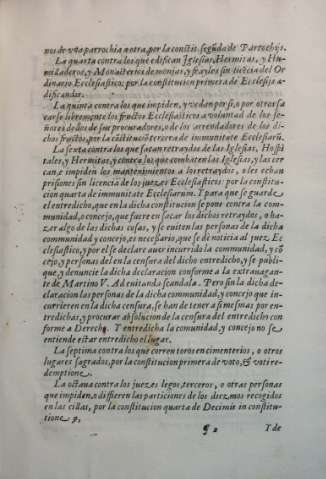 nos de vna parrochia a otra, por la constit. segũda de Parrochijs.
La quarta contra los que edifican Iglesias, Hermitas, y Hu-
milladeros, y Monasterios de monjas, y frayles sin licẽcia del Or
dinario Ecclesiastico: por la constitucion primera de Ecclesijs æ-
dificandis.
La quinta contra los que impiden, y vedan por si, o por otros sa
carse libremente los fructos Ecclesiasticos a voluntad de los se-
ñores dellos de sus procuradores, o de los arrendadores de los di-
chos fructos, por la cõstituciõ tercera de immunitate Ecclesiarũ.
La sexta contra los que sacan retraydos de las Iglesias, Hospi
tales, y Hermitas, y contra los que combaten las Iglesias, y las cer
can, e impiden los mantenimientos a los retraydos, o les echan
prisones sin licencia de los juezes Ecclesiasticos: por la constitu-
cion quarta de immunitate Ecclesiarum. Y para que se guarde
el entredicho, que en la dicha constitucion se pone contra la com-
munidad, o concejo, que fuere en sacar los dichos retraydos, o ha-
zer algo de las dichas cosas, y se euiten las personas de la dicha
communidad y concejo, es necesario, que se dè noticia al juez Ec
clesiastico, y por el se declare auer incurrido la communidad, y cõ
cejo, y personas del en la censura del dicho entredicho, y se publi-
que, y denuncie la dicha declaracion conforme a la extrauagan-
te de Martino V. Ad euitanda scandala. Pero sin la dicha de-
claracion las personas de la dicha communidad, y concejo que in-
currieren en la dicha censura, se han de tener a si mesmas por en-
tredichas, y procurar absolucion de la censura del entredicho con
forme a Derecho. Y entredicha la comunidad, y concejo no se
entiende estar entredicho el lugar.
La septima contra los que corren toros en cimenterios, o otros
lugares sagrados, por la constitucion primera de voto, & voti re-
demptione.
La octaua contra los juezes legos, terceros, o otras personas
que impiden, o differen las particiones de los diezmos recogidos
en las cillas, por la constitucion quarta de Decimis in constitu-
tione 9,
Y de